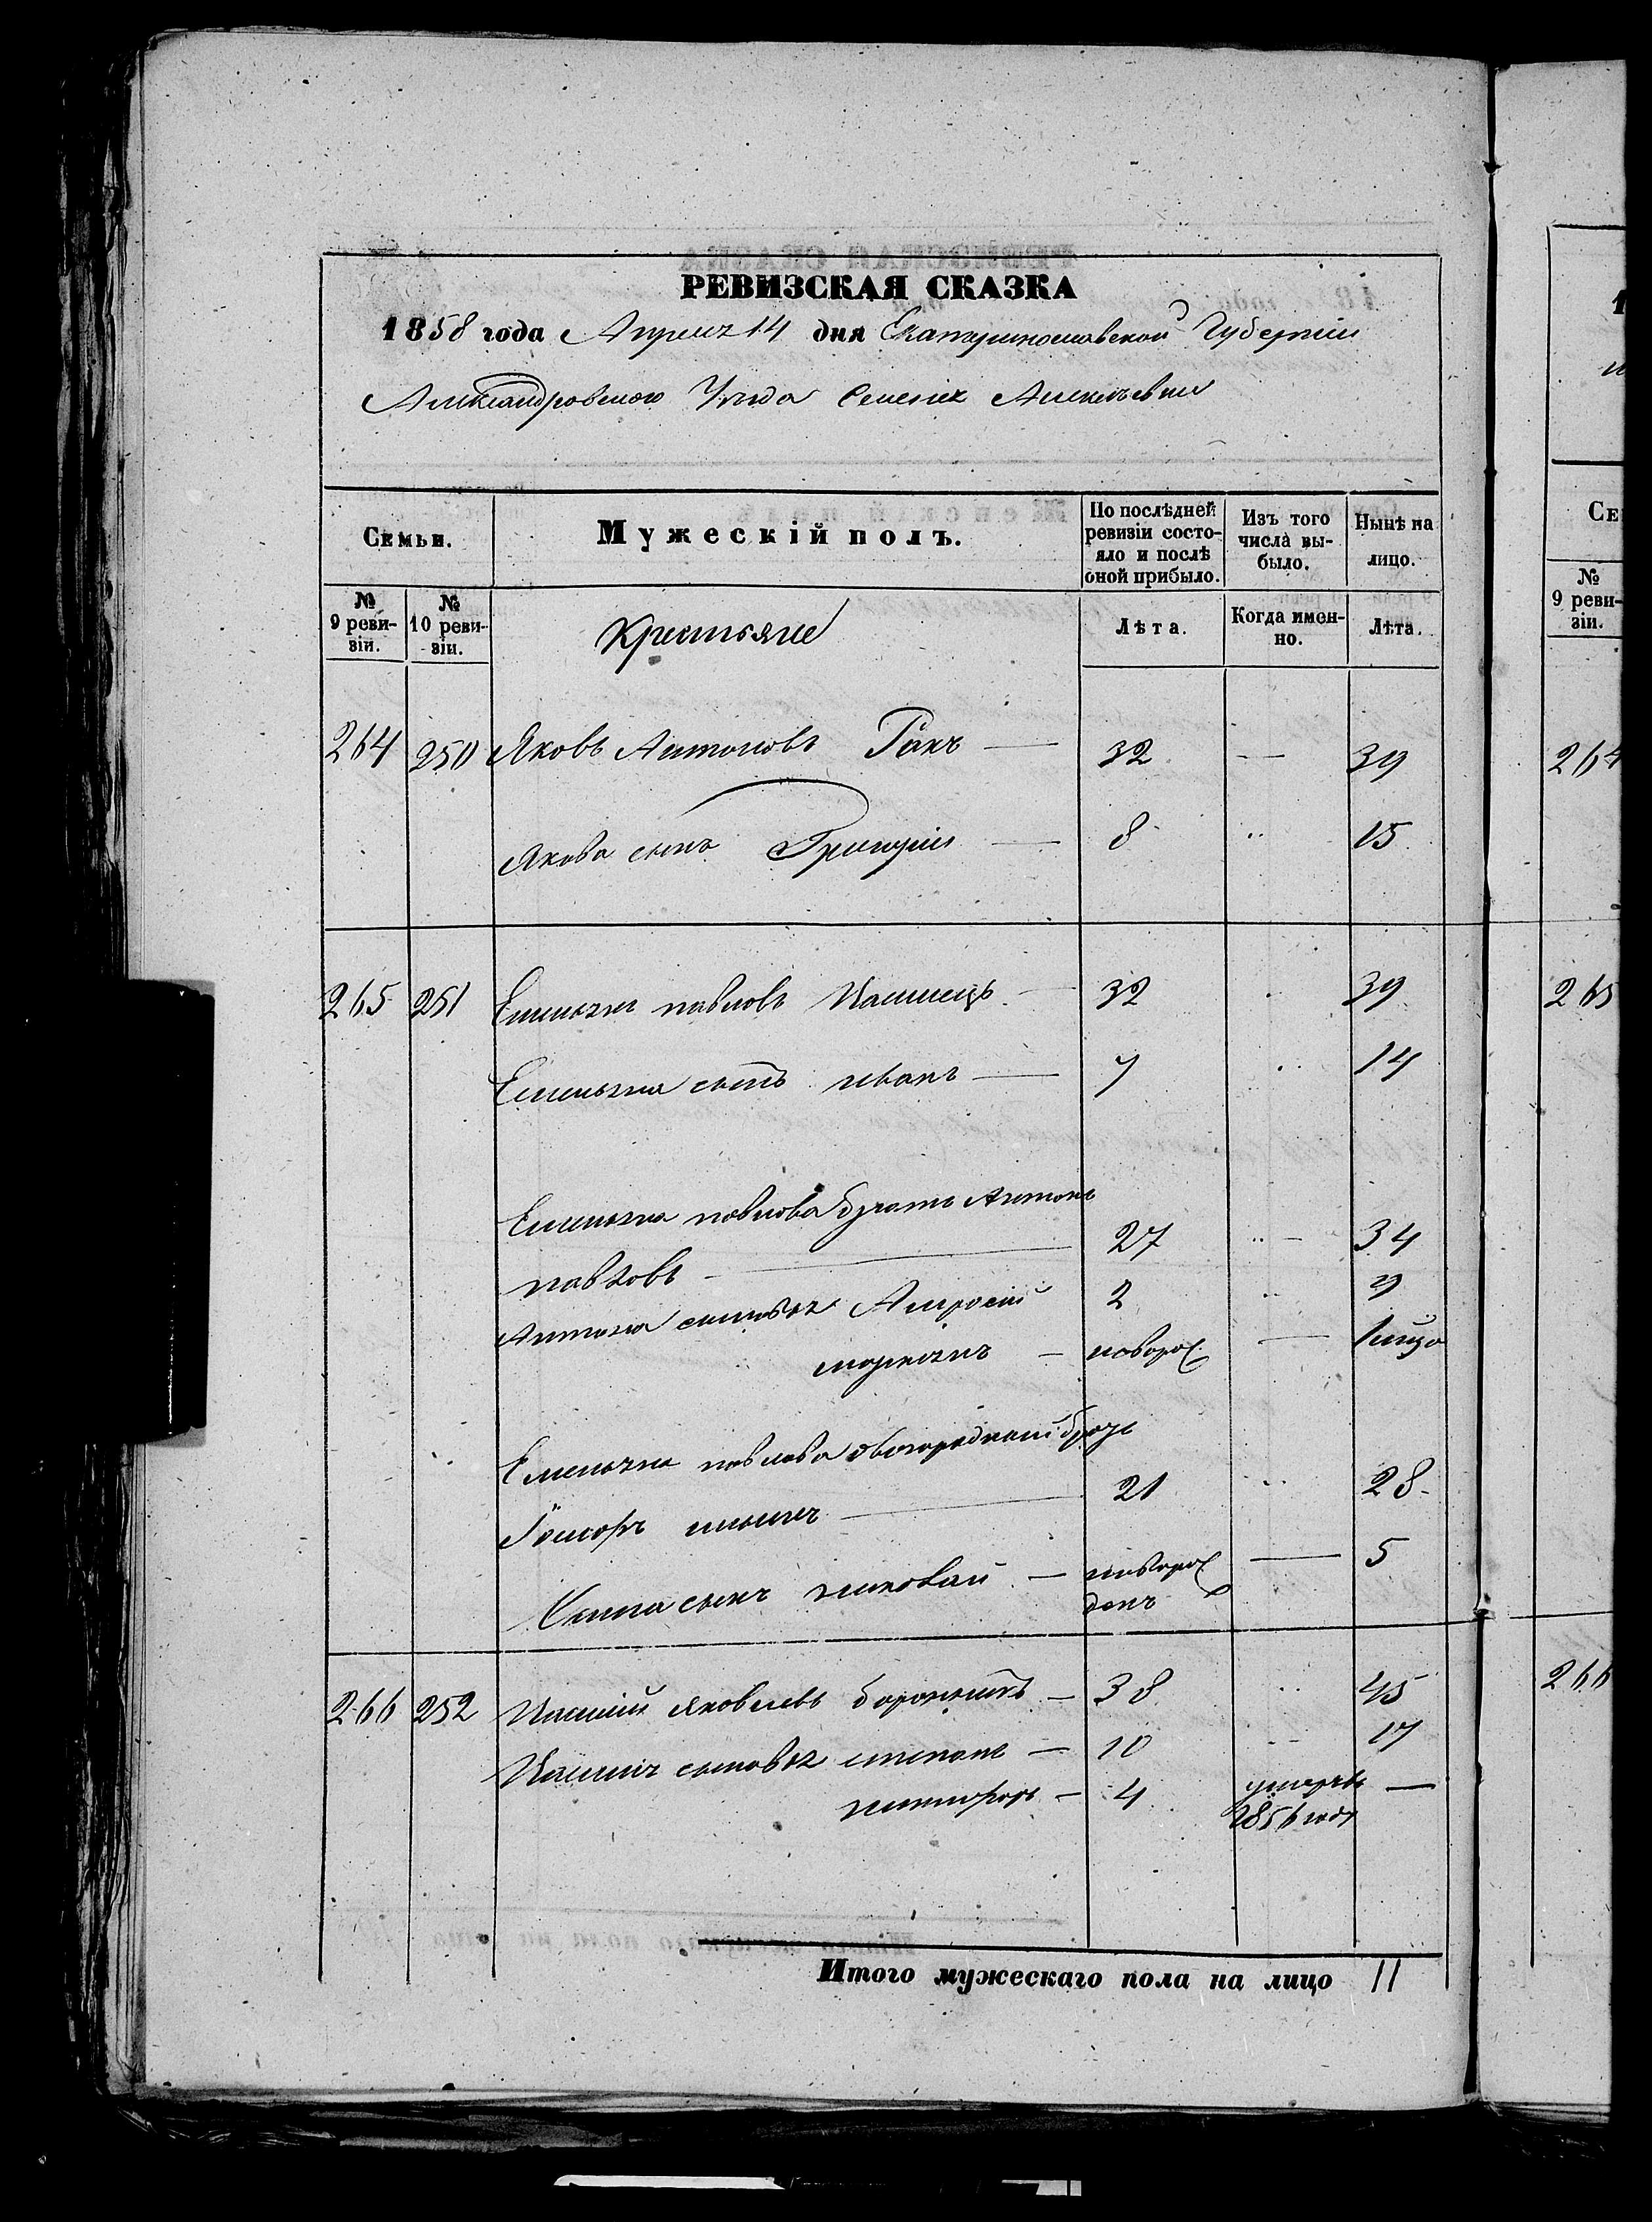 РЕВИЗСКАЯ СКАЗКА
1858 года Апреля 14 дня Екатеринославской Губернии
Александровского Уезда Селения
Семьи.
Мужескій полъ.
По послѣдней ревизіи состояло и послѣ оной прибыло.
Изъ того числа выбыло.
Нынѣ на лицо.
№ 9 ревизіи.
№ 10 ревизіи.
Крестьяне
Лѣта.
Когда именно.
Лѣта.
264 250 Яковъ Антоновъ Ракъ — 32 — 39
Якова сынъ Григорій — 8 " 15
265 251 Емельянъ павловъ — 32 39
Емельяна сынъ иванъ — 7 " 14
Емельяна павлова братъ Антонъ
павловъ — 27 " 34
Антона сыновья Амросій 2 " 9
— новорож — 1 лицо
Емельяна павлова двоюродный братъ
21 " 28
сынъ николай — новорож
денъ — 5
266 252 Яковлевъ — 38 " 45
сыновья степанъ — 10 " 17
никифоръ — 4 умеръ —
1856 года
Итого мужескаго пола на лицо 11
1
Се
№ 9 ревизіи.
264
265
266